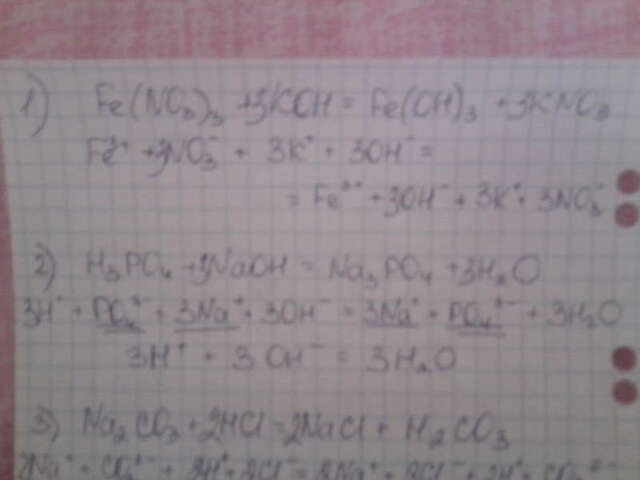 1) Fe(NO₃)₃ + 3KOH = Fe(OH)₃ + 3KNO₃
Fe³⁺ + 3NO₃⁻ + 3K⁺ + 3OH⁻ =
= Fe³⁺ + 3OH⁻ + 3K⁺ + 3NO₃⁻
2) H₃PO₄ + 3NaOH = Na₃PO₄ + 3H₂O
3H⁺ + PO₄³⁻ + 3Na⁺ + 3OH⁻ = 3Na⁺ + PO₄³⁻ + 3H₂O
3H⁺ + 3OH⁻ = 3H₂O
3) Na₂CO₃ + 2HCl = 2NaCl + H₂CO₃
2Na⁺ + CO₃²⁻ + 2H⁺ + 2Cl⁻ = 2Na⁺ + 2Cl⁻ + 2H⁺ + CO₃²⁻